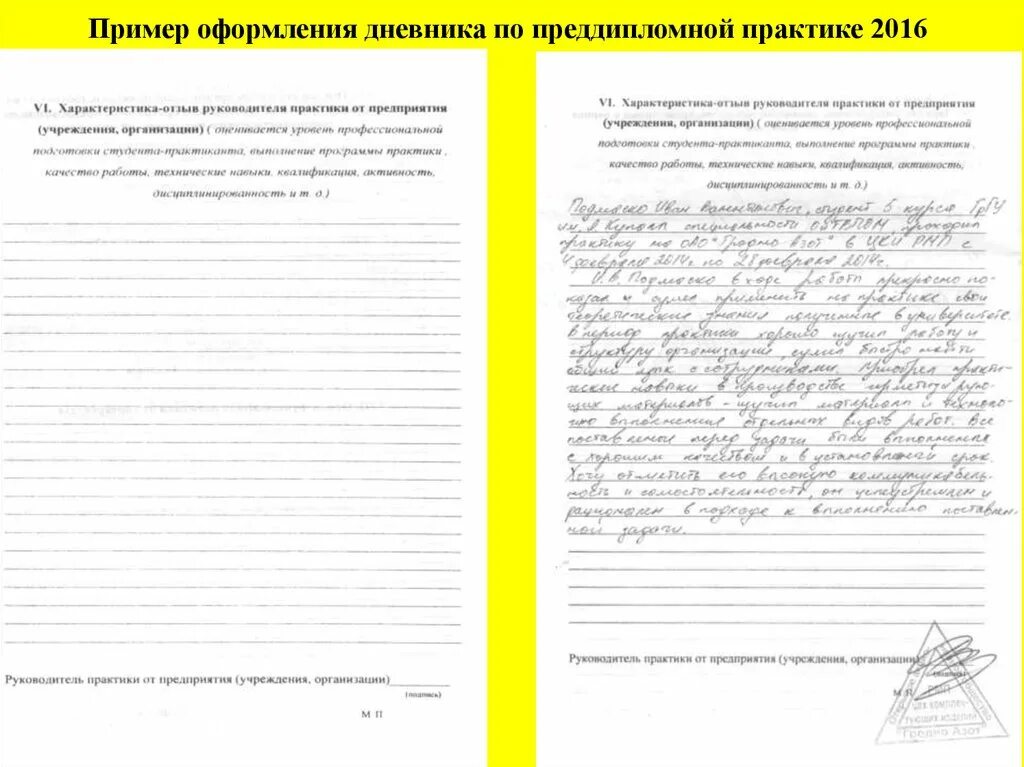 Пример оформления дневника по преддипломной практике 2016
VI. Характеристика-отзыв руководителя практики от предприятия
(учреждения, организации) ( оценивается уровень профессиональной
подготовки студента-практиканта, выполнение программы практики ,
качество работы, технические навыки, квалификация, активность,
дисциплинированность и т. д.)
Руководитель практики от предприятия (учреждения, организации)
(подпись)
М П
VI. Характеристика-отзыв руководителя практики от предприятия
(учреждения, организации) ( оценивается уровень профессиональной
подготовки студента-практиканта, выполнение программы практики ,
качество работы, технические навыки, квалификация, активность,
дисциплинированность и т. д.)
Подмаско Иван Валентинович, студент 5 курса ГрГУ
им. Я. Купалы специальности проходил
практику на ОАО "Гродно Азот" в РМП с
4 февраля 2014г. по 28 февраля 2014г.
И.В. Подмаско в ходе работы прекрасно по-
казал и сумел применить на практике свои
теоретические знания полученные в университете.
В период практики хорошо изучил работу и
структуру организации, сумел быстро найти
общий язык с сотрудниками. Приобрел практи-
ческие навыки в производстве
материалов - изучил материалы и техноло-
гию выполнения отдельных видов работ. Все
поставленные перед задачи были выполнены
с хорошим качеством и в установленный срок.
Хочу отметить его высокую коммуникабель-
ность и самостоятельность, он целеустремлен и
рационален в подходе к выполнению поставлен-
ной задачи.
Руководитель практики от предприятия (учреждения, организации)
(подпись)
М П
РМП
цех комплек-
тующих изделий
Гродно Азот